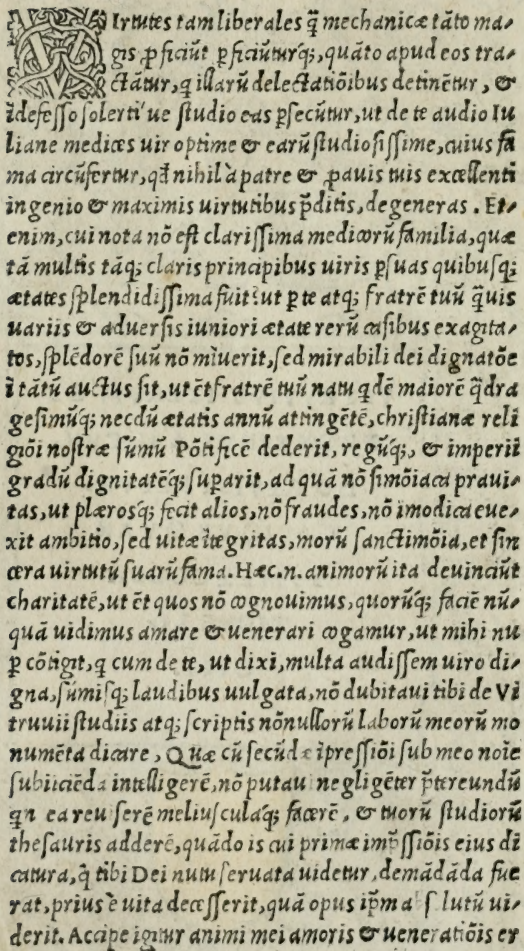 VIrtutes tam liberales q̃ mechanicæ tãto ma-
gis ꝓficiũt ꝑficiũturq;, quãto apud eos tra-
ctãtur, q illarũ delectatiõibus detinẽtur, &
ĩdefesso solerti´ue studio eas ꝑsecũtur, ut de te audio Iu
liane medices uir optime & earũ studiosissime, cuius fa
ma circũfertur, qđ nihil à patre & ꝓauis tuis excellenti
ingenio & maximis uirtutibus p̃ditis, degeneras. Et-
enim, cui nota nõ est clarissima medicorũ familia, quæ
tã multis tãq; claris principibus uiris ꝑ suas quibusq;
ætates splendidissima fuit? ut ꝑ te atq; fratrẽ tuũ q̃uis
uariis & aduersis iuniori ætate rerũ casibus exagita-
tos, splẽdorẽ suũ nõ mĩuerit, sed mirabili dei dignatõe
ĩ tãtũ auctus sit, ut ẽt fratrẽ tuũ natu qdẽ maiorẽ q̃dra
gesimũq; necdũ ætatis annũ attingẽtẽ, christianæ reli
giõi nostræ sũmũ Põtificẽ dederit, regũq;, & imperii
gradũ dignitatẽq; suꝑarit, ad quã nõ simõiaca praui-
tas, ut plærosq; fecit alios, nõ fraudes, nõ imodica eue-
xit ambitio, sed uitæ ĩtegritas, morũ sanctimõia, et sin
cera uirtutũ suarũ fama. Hæc.n. animorũ ita deuinciũt
charitatẽ, ut ẽt quos nõ cognouimus, quorũq; faciẽ nũ-
quã uidimus amare & uenerari cogamur, ut mihi nu
ꝑ cõtigit, q cum de te, ut dixi, multa audissem uiro di-
gna, sũmisq; laudibus uulgata, nõ dubitaui tibi de Vi
truuii studiis atq; scriptis nõnullorũ laborũ meorũ mo
numẽta dicare, Quæ cũ secũdæ ĩpressiõi sub meo noĩe
subiiciẽda intelligerẽ, nõ putaui negligẽter p̃tereundũ
qn ea reuiserẽ meliusculaq; facerẽ, & tuorũ studiorũ
thesauris adderẽ, quãdo is cui primæ imp̃ssiõis eius di
catura, q̃ tibi Dei nutu seruata uidetur, demãdãda fue
rat, prius è uita decesserit, quã opus ip̃m absolutũ ui-
derit. Accipe igitur animi mei amoris & ueneratiõis er